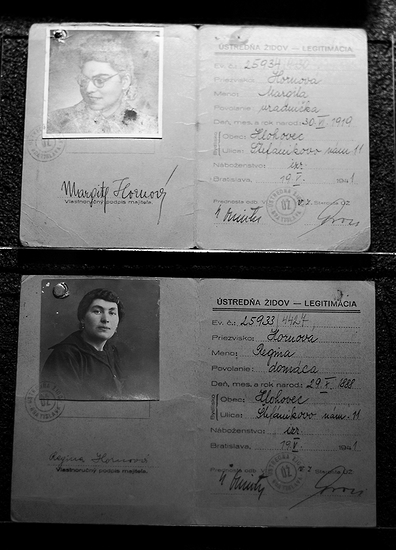 ÚSTREDŇA ŽIDOV — LEGITIMÁCIA
Ev. č.: 25934
Priezvisko: Hornova
Meno: Margita
Povolanie: uradnička
Deň, mes. a rok narod: 30. 1919
Obec: Hlohovec
Ulica: Štefánikovo nám. 11
Náboženstvo: izr
Bratislava, 19. V. 1941
Margita Hornová
Vlastnoručný podpis majiteľa.
Prednosta odd.
ÚŽ
ÚSTREDŇA ŽIDOV — LEGITIMÁCIA
Ev. č.: 25933/4427
Priezvisko: Hornova
Meno: Regina
Povolanie: domáca
Deň, mes. a rok narod: 29. V. 1888
Obec: Hlohovec
Ulica: Štefánikovo nám. 11
Náboženstvo: izr
Bratislava, 19. V. 1941
Regina Hornová
Vlastnoručný podpis majiteľa.
Prednosta odd.
ÚŽ